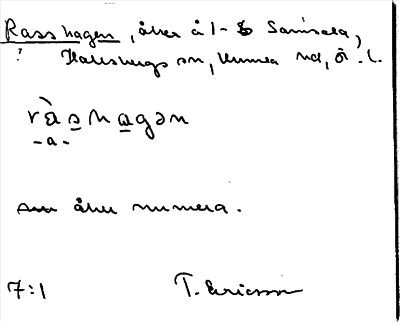 Rasshagen, åker å 1-8 Samsala,
! Hallsbergs sn, Kumla hd, Ö. L.
ràshagən
-a-
åker numera.
7:1 T. Ericsson